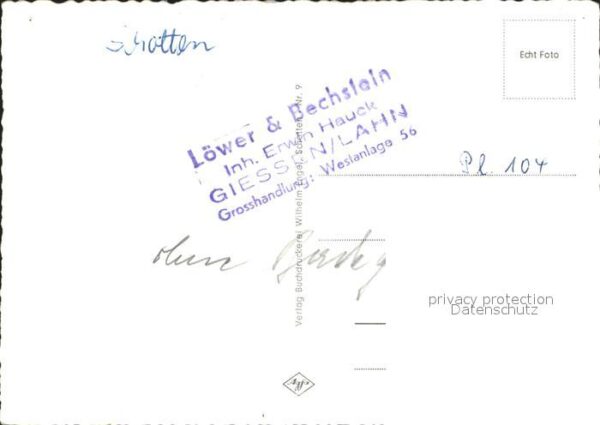 Schotten
Echt Foto
Löwer & Bechstein
Inh. Erwin Hauck
GIESSEN/LAHN
Grosshandlung: Westanlage 56
Pl. 104
Verlag Buchdruckerei Wilhelm Engel, Schotten Nr. 9
ohne
privacy protection
Datenschutz
Agfa